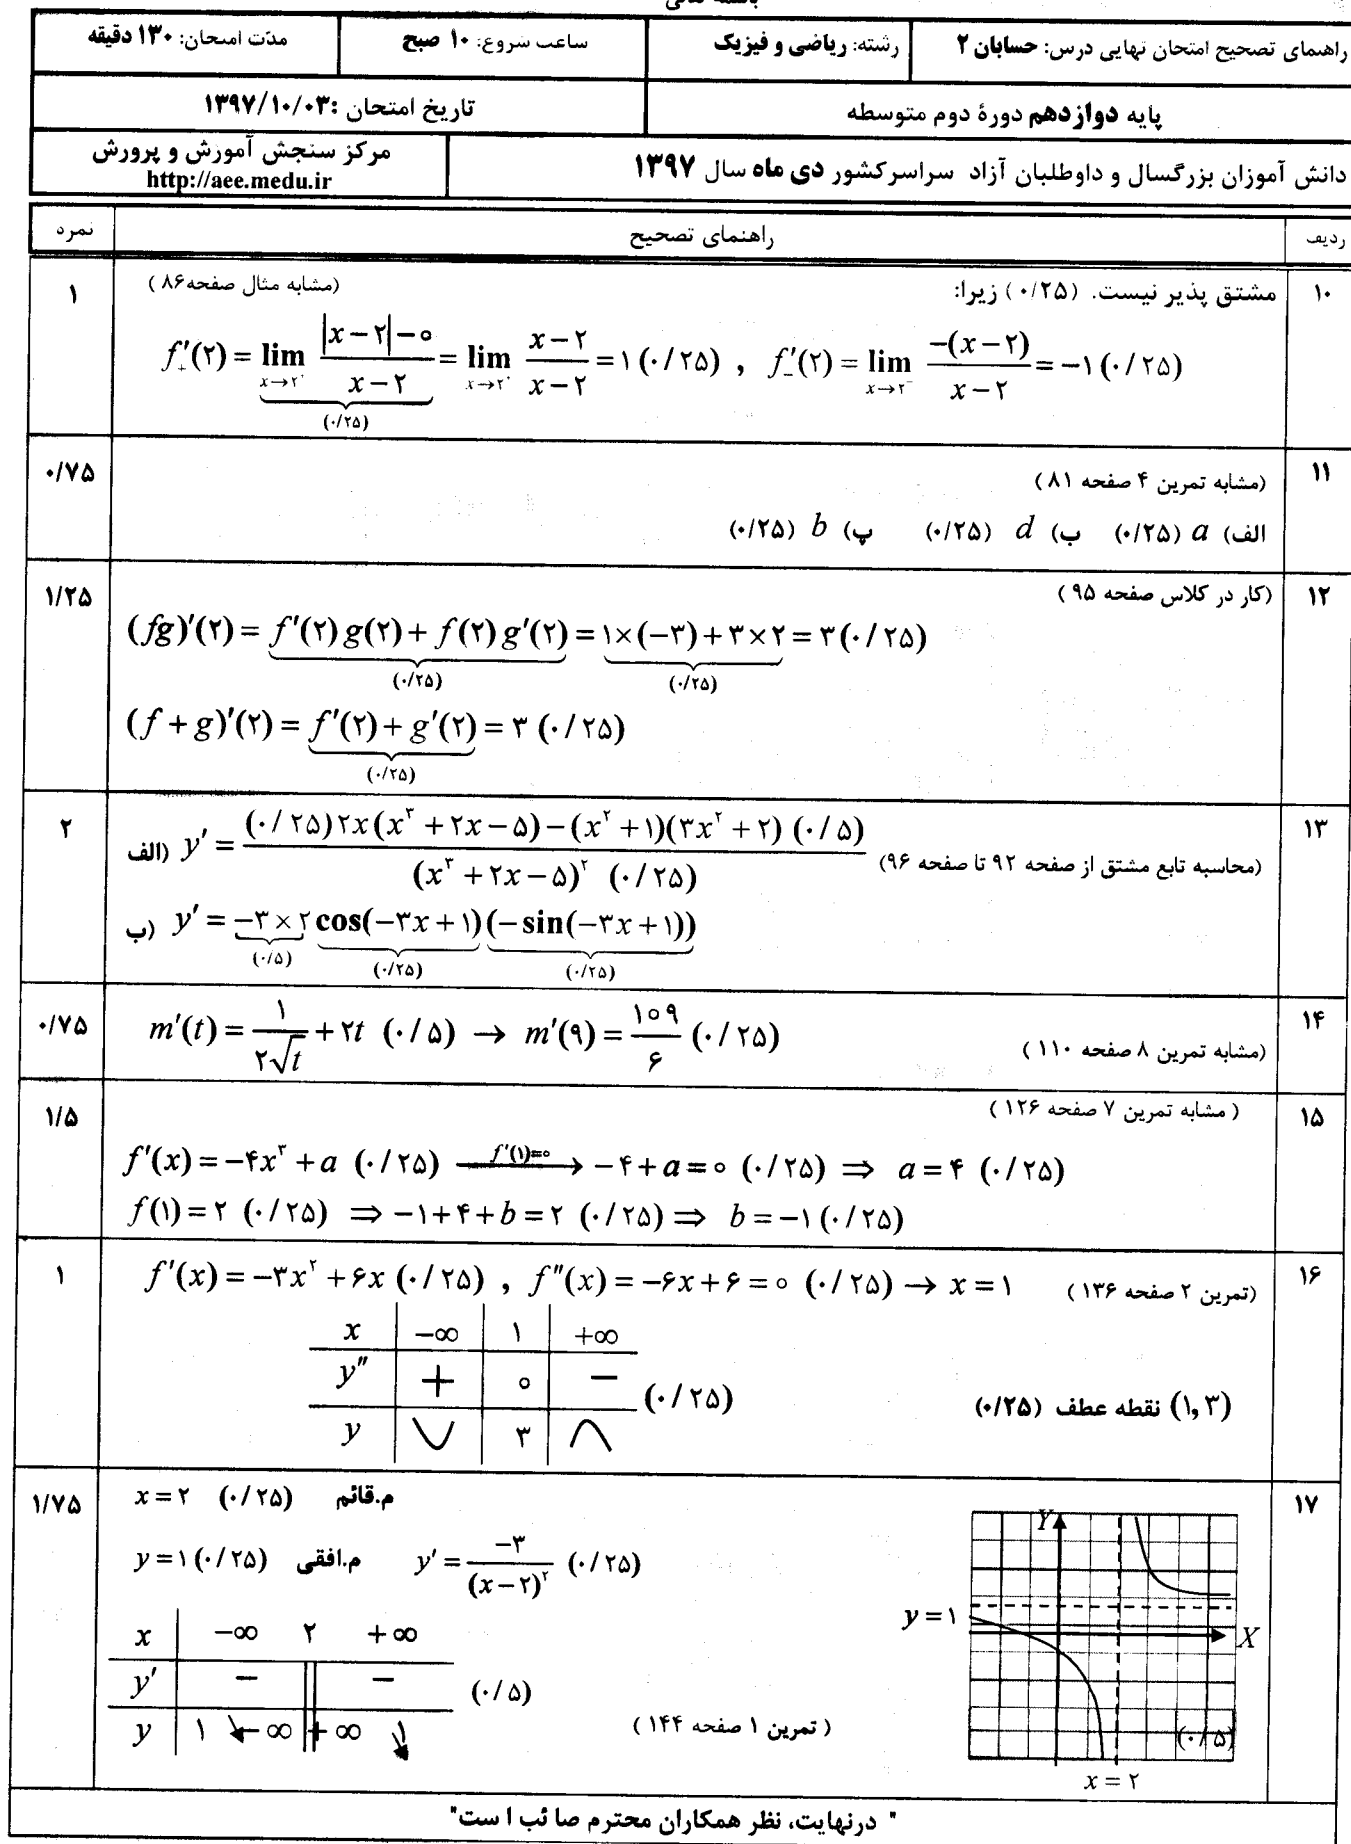 باسمه تعالی
راهنمای تصحیح امتحان نهایی درس: حسابان ۲ رشته: ریاضی و فیزیک ساعت شروع: ۱۰ صبح مدّت امتحان: ۱۳۰ دقیقه
پایه دوازدهم دورهٔ دوم متوسطه تاریخ امتحان :۱۳۹۷/۱۰/۰۳
دانش آموزان بزرگسال و داوطلبان آزاد سراسرکشور دی ماه سال ۱۳۹۷ مرکز سنجش آموزش و پرورش
http://aee.medu.ir
ردیف راهنمای تصحیح نمره
۱۰ مشتق پذیر نیست. (۰/۲۵) زیرا: (مشابه مثال صفحه۸۶) ۱
f′₊(۲) = lim x→۲⁺ (|x−۲|−۰)/(x−۲) (۰/۲۵) = lim x→۲⁺ (x−۲)/(x−۲) = ۱ (۰/۲۵) , f′₋(۲) = lim x→۲⁻ −(x−۲)/(x−۲) = −۱ (۰/۲۵)
۱۱ (مشابه تمرین ۴ صفحه ۸۱) ۰/۷۵
الف) a (۰/۲۵) ب) d (۰/۲۵) پ) b (۰/۲۵)
۱۲ (کار در کلاس صفحه ۹۵) ۱/۲۵
(fg)′(۲) = f′(۲)g(۲) + f(۲)g′(۲) (۰/۲۵) = ۱×(−۳)+۳×۲ (۰/۲۵) = ۳ (۰/۲۵)
(f+g)′(۲) = f′(۲)+g′(۲) (۰/۲۵) = ۳ (۰/۲۵)
۱۳ (محاسبه تابع مشتق از صفحه ۹۲ تا صفحه ۹۶) ۲
الف) y′ = ((۰/۲۵) ۲x(x³+۲x−۵)−(x²+۱)(۳x²+۲) (۰/۵)) / ((x³+۲x−۵)² (۰/۲۵))
ب) y′ = −۳×۲ (۰/۵) cos(−۳x+۱) (۰/۲۵) (−sin(−۳x+۱)) (۰/۲۵)
۱۴ (مشابه تمرین ۸ صفحه ۱۱۰) ۰/۷۵
m′(t) = ۱/(۲√t) + ۲t (۰/۵) → m′(۹) = ۱۰۹/۶ (۰/۲۵)
۱۵ (مشابه تمرین ۷ صفحه ۱۲۶) ۱/۵
f′(x) = −۴x³+a (۰/۲۵) f′(۱)=۰ → −۴+a=۰ (۰/۲۵) ⇒ a=۴ (۰/۲۵)
f(۱)=۲ (۰/۲۵) ⇒ −۱+۴+b=۲ (۰/۲۵) ⇒ b=−۱ (۰/۲۵)
۱۶ (تمرین ۲ صفحه ۱۳۶) ۱
f′(x) = −۳x²+۶x (۰/۲۵) , f″(x) = −۶x+۶=۰ (۰/۲۵) → x=۱
x −∞ ۱ +∞
y″ + ۰ − (۰/۲۵)
y ∪ ۳ ∩
(۱,۳) نقطه عطف (۰/۲۵)
۱۷ ۱/۷۵
x=۲ (۰/۲۵) م.قائم
y=۱ (۰/۲۵) م.افقی y′ = −۳/(x−۲)² (۰/۲۵)
x −∞ ۲ +∞
y′ − − (۰/۵)
y ۱ ↘ −∞ +∞ ↘ ۱
(تمرین ۱ صفحه ۱۴۴)
Y
y=۱
X
(۰/۵)
x=۲
" درنهایت، نظر همکاران محترم صائب است"